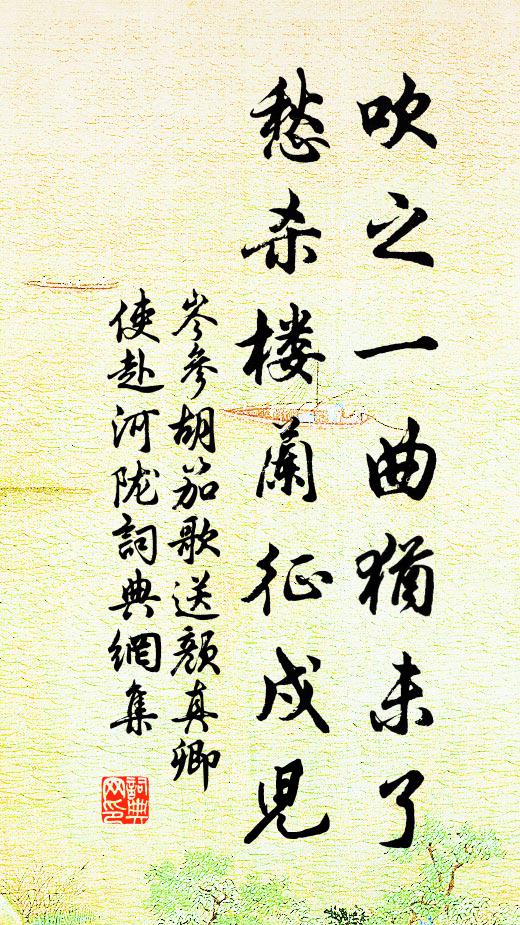 吹之一曲猶未了
愁杀楼蘭征戍児
岑參胡笳歌送颜真卿
使赴河陇詞典網集
詞典
网印